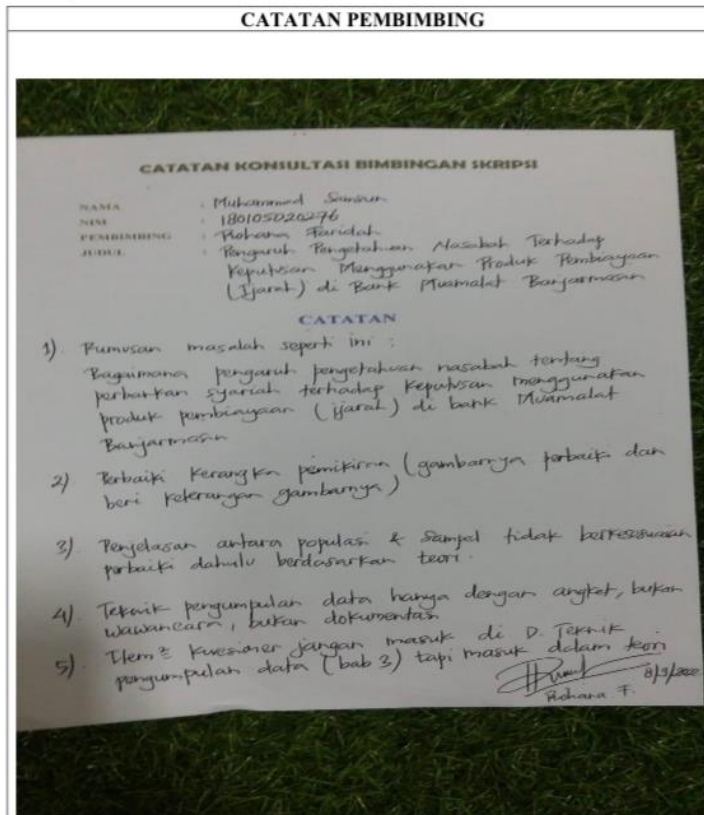 CATATAN PEMBIMBING
CATATAN KONSULTASI BIMBINGAN SKRIPSI
NAMA : Muhammad Samsun
NIM : 180105020276
PEMBIMBING : Rohana Faridah
JUDUL : Pengaruh Pengetahuan Nasabah Terhadap
Keputusan Menggunakan Produk Pembiayaan
(Ijarah) di Bank Muamalat Banjarmasin
CATATAN
1) Rumusan masalah seperti ini :
Bagaimana pengaruh pengetahuan nasabah tentang
perbankan syariah terhadap keputusan menggunakan
produk pembiayaan (ijarah) di bank Muamalat
Banjarmasin
2) Perbaiki kerangka pemikiran (gambarnya perbaiki dan
beri keterangan gambarnya)
3) Penjelasan antara populasi & sampel tidak berkesesuaian
perbaiki dahulu berdasarkan teori.
4) Teknik pengumpulan data hanya dengan angket, bukan
wawancara, bukan dokumentasi
5) Item2 kuesioner jangan masuk di D. Teknik
pengumpulan data (bab 3) tapi masuk dalam teori
Rohana. F.